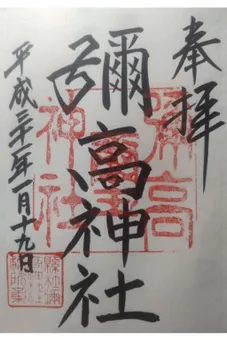 奉拝
彌高神社
平成三十一年一月十九日
彌高
神社